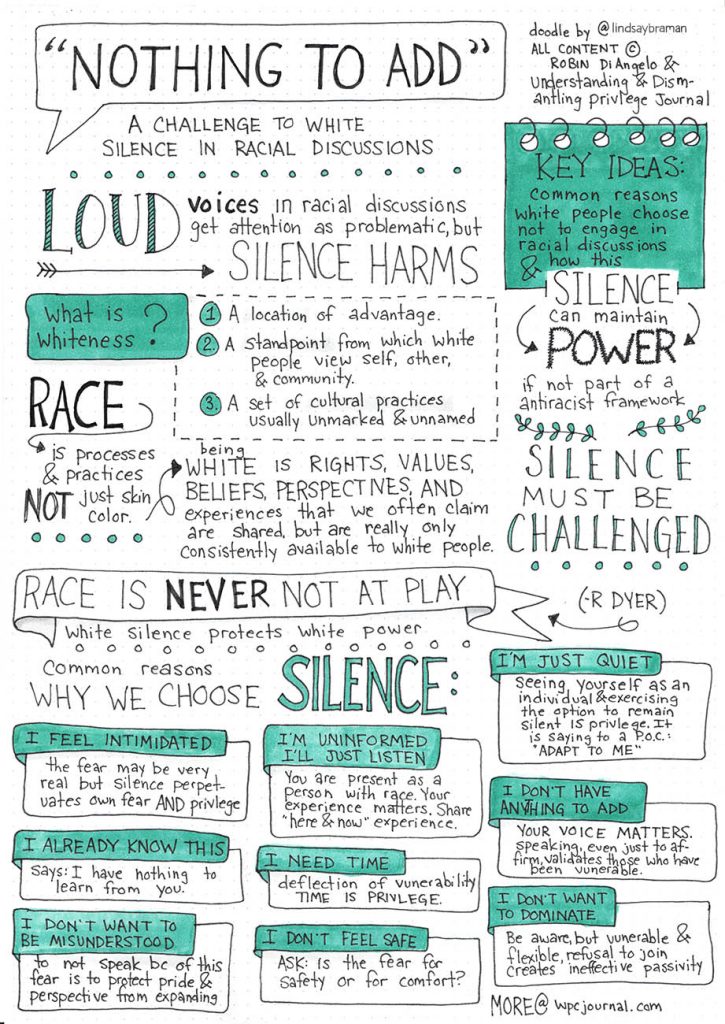 "NOTHING TO ADD"
A CHALLENGE TO WHITE
SILENCE IN RACIAL DISCUSSIONS
doodle by @lindsaybraman
ALL CONTENT ©
ROBIN DiANGELO &
Understanding & Dism-
antling privlege Journal
LOUD voices in racial discussions
get attention as problematic, but
SILENCE HARMS
KEY IDEAS:
Common reasons
white people choose
not to engage in
racial discussions
& how this
SILENCE
can maintain
POWER
if not part of a
antiracist framework
SILENCE
MUST BE
CHALLENGED
What is
whiteness?
1 A location of advantage.
2. A standpoint from which white
people view self, other,
& community.
3. A set of cultural practices
usually unmarked & unnamed
RACE
is processes
& practices
NOT just skin
color.
being
WHITE IS RIGHTS, VALUES,
BELIEFS, PERSPECTIVES, AND
experiences that we often claim
are shared, but are really only
consistently available to white people.
RACE IS NEVER NOT AT PLAY
(-R DYER)
white silence protects white power
Common reasons
WHY WE CHOOSE SILENCE:
I FEEL INTIMIDATED
the fear may be very
real but silence perpet-
uates own fear AND privlege
I ALREADY KNOW THIS
says: I have nothing to
learn from you.
I DON'T WANT TO
BE MISUNDERSTOOD
to not speak bc of this
fear is to protect pride &
perspective from expanding
I'M UNINFORMED
I'LL JUST LISTEN
You are present as a
person with race. Your
experience matters. Share
"here & now" experience.
I NEED TIME
deflection of vunerability
TIME IS PRIVLEGE.
I DON'T FEEL SAFE
ASK: Is the fear for
safety or for comfort?
I'M JUST QUIET
Seeing yourself as an
individual & exercising
the option to remain
silent IS privlege. It
is saying to a P.O.C.:
"ADAPT TO ME"
I DON'T HAVE
ANYTHING TO ADD
YOUR VOICE MATTERS.
speaking, even just to af-
firm, validates those who have
been vunerable.
I DON'T WANT
TO DOMINATE
Be aware, but vunerable &
flexible, refusal to join
creates ineffective passivity
MORE@ wpcjournal.com